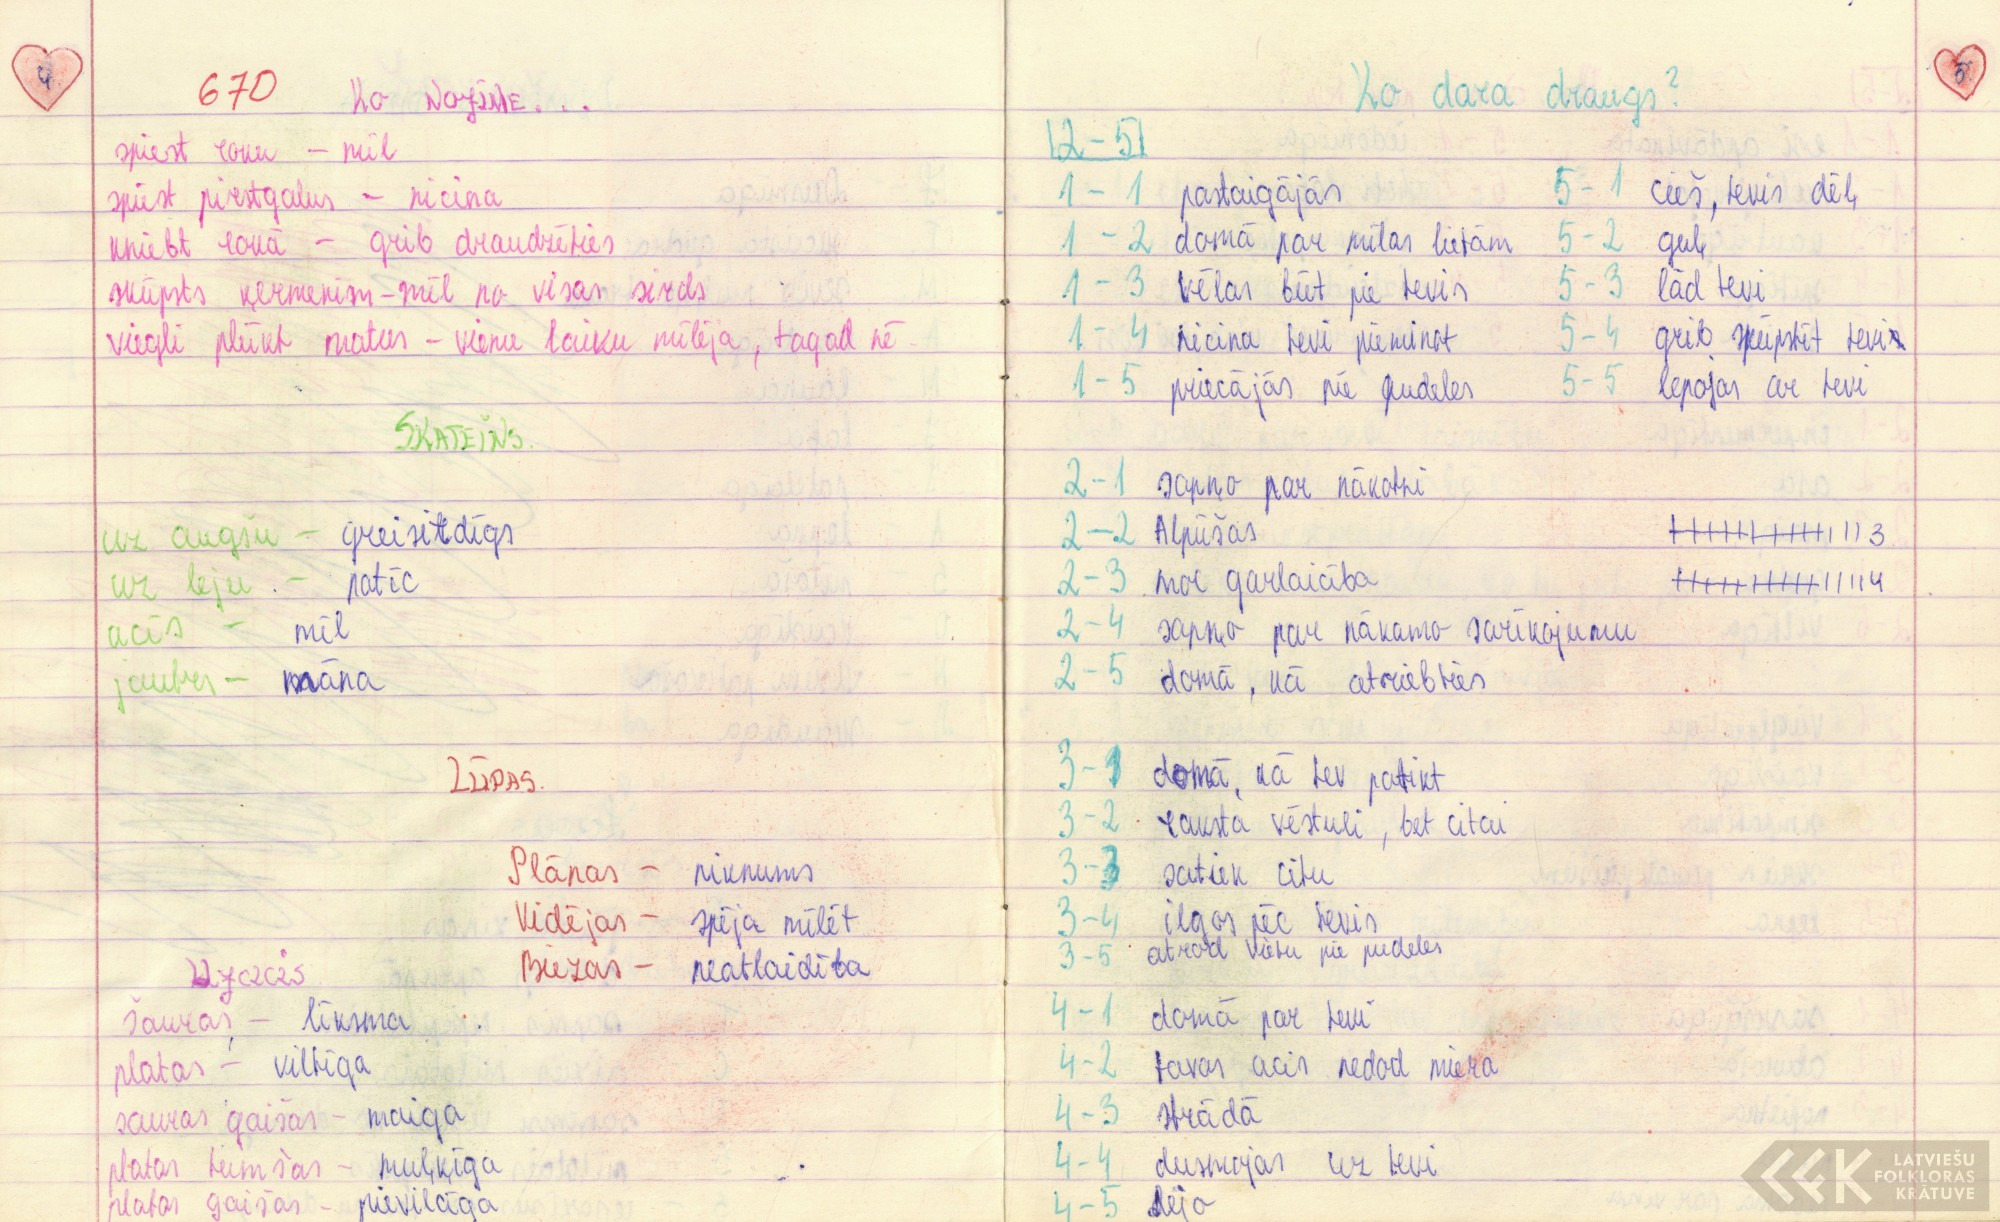 4.
670 Ko nozīme...
spiest roku – mīl
spiest pirstgalus – nicina
kniebt rokā – grib draudzēties
skūpsts ķermenim – mīl no visas sirds
viegli plūkt matus – vienu laiku mīlēja, tagad nē
SKATEINS.
uz augšu – greisirdīgs
uz leju – patīc
acīs – mīl
jautrs – māna
LŪPAS.
Plānas – niknums
Vidējas – spēja mīlēt
Biezas – neatlaidība
Uzacis
šauras – līksma
platas – viltīga
sauras gaišas – maiga
platas tumšas – muļķīga
platas gaišas – pievilcīga
5.
Ko dara draugs?
|2-5|
1-1 pastaigājās
1-2 domā par mīlas lietām
1-3 vēlas būt pie tevis
1-4 nicina tevi pieminot
1-5 priecājās pie pudeles
5-1 cieš, tevis dēļ
5-2 guļ
5-3 lād tevi
5-4 grib skūpstīt tevi
5-5 lepojas ar tevi
2-1 sapņo par nākotni
2-2 Alpūšas
2-3 moc garlaicība
2-4 sapņo par nākamo sarīkojumu
2-5 domā, kā atriebties
3
4
3-1 domā, kā tev patikt
3-2 raksta vēstuli, bet citai
3-3 satiek citu
3-4 ilgos pēc tevis
3-5 atrod vietu pie pudeles
4-1 domā par tevi
4-2 tavas acis nedod miera
4-3 strādā
4-4 dusmojas uz tevi
4-5 dejo
LATVIEŠU
FOLKLORAS
KRĀTUVE